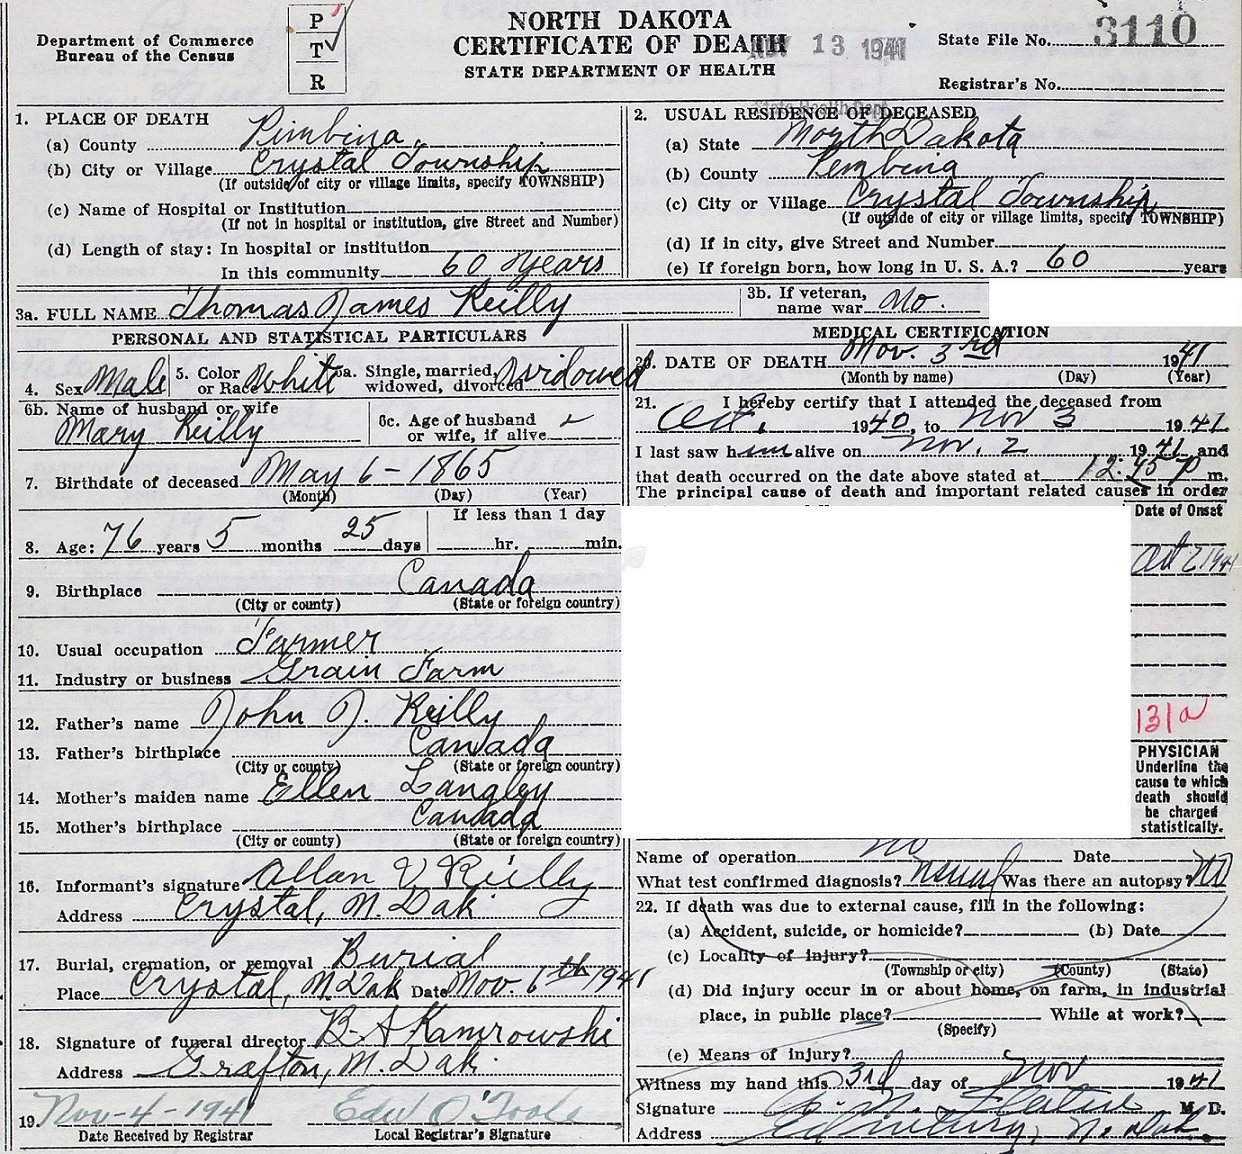 Department of Commerce
Bureau of the Census
P
T
R
NORTH DAKOTA
CERTIFICATE OF DEATH
STATE DEPARTMENT OF HEALTH
NOV 13 1941
State Health Dept.
State File No. 3110
Registrar's No.
1. PLACE OF DEATH
(a) County Pimbina
(b) City or Village Crystal Township
(If outside of city or village limits, specify TOWNSHIP)
(c) Name of Hospital or Institution
(If not in hospital or institution, give Street and Number)
(d) Length of stay: In hospital or institution
In this community 60 years
2. USUAL RESIDENCE OF DECEASED
(a) State North Dakota
(b) County Pembina
(c) City or Village Crystal Township
(If outside of city or village limits, specify TOWNSHIP)
(d) If in city, give Street and Number
(e) If foreign born, how long in U. S. A.? 60 years
3a. FULL NAME Thomas James Reilly
3b. If veteran, name war No.
PERSONAL AND STATISTICAL PARTICULARS
4. Sex Male 5. Color or Race White 6a. Single, married, widowed, divorced Widowed
6b. Name of husband or wife Mary Reilly
6c. Age of husband or wife, if alive
7. Birthdate of deceased May 6 - 1865
(Month) (Day) (Year)
8. Age: 76 years 5 months 25 days
If less than 1 day
hr. min.
9. Birthplace Canada
(City or county) (State or foreign country)
10. Usual occupation Farmer
11. Industry or business Grain Farm
12. Father's name John J. Reilly
13. Father's birthplace Canada
(City or county) (State or foreign country)
14. Mother's maiden name Ellen Langley
15. Mother's birthplace Canada
(City or county) (State or foreign country)
16. Informant's signature Allan V Reilly
Address Crystal, N. Dak
17. Burial, cremation, or removal Burial
Place Crystal, N. Dak Date Nov. 6th 1941
18. Signature of funeral director B. A Kamrowski
Address Grafton, N. Dak.
19. Nov - 4 - 1941 Edw O'Toole
Date Received by Registrar Local Registrar's Signature
MEDICAL CERTIFICATION
20. DATE OF DEATH Nov. 3rd 1941
(Month by name) (Day) (Year)
21. I hereby certify that I attended the deceased from
Oct. 1940, to Nov 3 1941.
I last saw him alive on Nov. 2 1941 and
that death occurred on the date above stated at 12:45 P m.
The principal cause of death and important related causes in order
Date of Onset
Oct 2 1941
131a
PHYSICIAN
Underline the
cause to which
death should
be charged
statistically.
Name of operation no Date
What test confirmed diagnosis? usual Was there an autopsy? No
22. If death was due to external cause, fill in the following:
(a) Accident, suicide, or homicide? (b) Date
(c) Locality of injury?
(Township or city) (County) (State)
(d) Did injury occur in or about home, on farm, in industrial
place, in public place? While at work?
(Specify)
(e) Means of injury?
Witness my hand this 3rd day of Nov 1941
Signature M. D.
Address Edinburg, N. Dak.